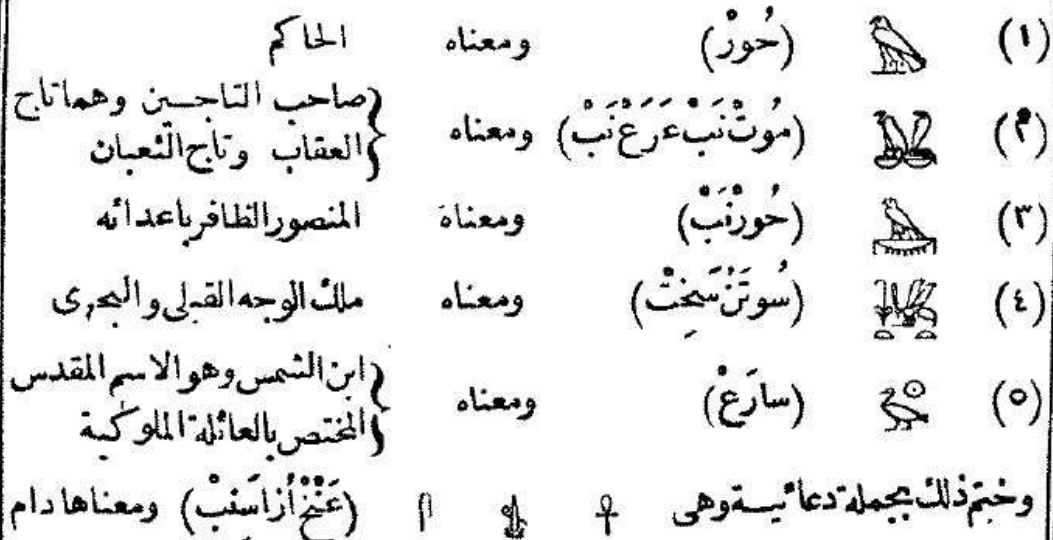 (١) (حُورْ) ومعناه الحاكم
(٢) (مُوتْ نَبْ عَرَعْ نَبْ) ومعناه {صاحب التاجين وهما تاج
العقاب وتاج الثعبان
(٣) (حُورْنَبْ) ومعناه المنصور الظافر باعدائه
(٤) (سُوتَنْ سَخِتْ) ومعناه ملك الوجه القبلى والبحرى
(٥) (سارَعْ) ومعناه {ابن الشمس وهو الاسم المقدس
المختص بالعائلة الملوكية
وختم ذلك بجملة دعائية وهى (عَنْخْ أُزاسَنِبْ) ومعناها دام